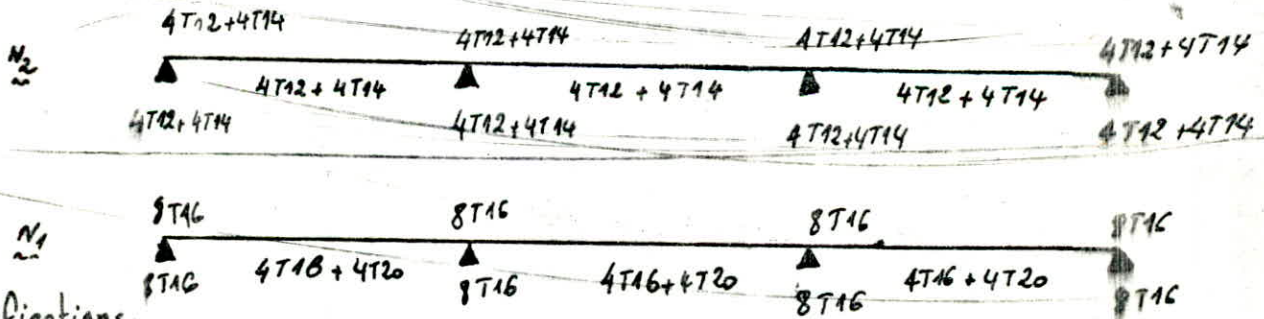 4T12+4T14 4T12+4T14 4T12+4T14 4T12+4T14
N2
4T12 + 4T14 4T12 + 4T14 4T12 + 4T14
4T12+4T14 4T12+4T14 4T12+4T14 4T12+4T14
8T16 8T16 8T16 8T16
N1
4T16 + 4T20 4T16+4T20 4T16 + 4T20
8T16 8T16 8T16 8T16